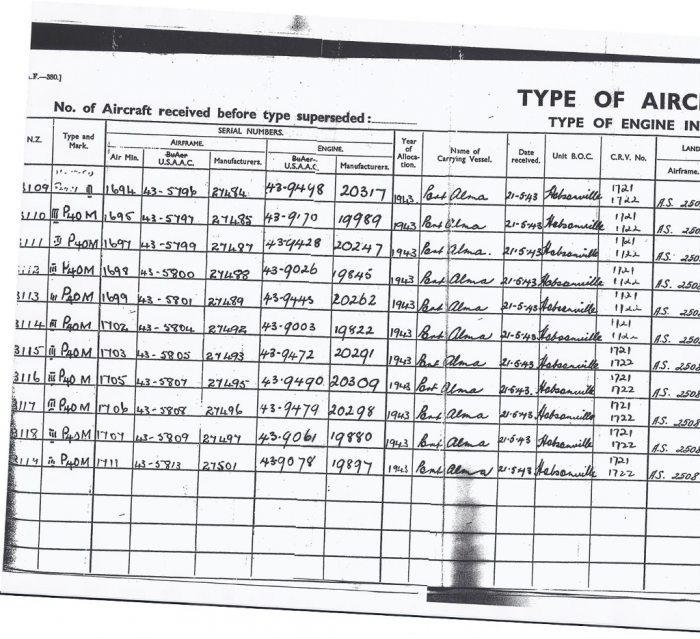 .F.—380.]
TYPE OF AIRC
No. of Aircraft received before type superseded:
TYPE OF ENGINE IN
N.Z. Type and Mark. SERIAL NUMBERS. Year of Alloca- tion. Name of Carrying Vessel. Date received. Unit B.O.C. C.R.V. No. LAND
AIRFRAME. ENGINE. Airframe.
Air Min. BuAer U.S.A.A.C. Manufacturers. BuAer U.S.A.A.C. Manufacturers.
3109 III 1694 43-5796 27484 43-9498 20317 1943 Port Alma 21-5-43 Hobsonville 1721 1722 A.S. 250
3110 III P40M 1695 43-5797 27485 43-9170 19989 1943 Port Alma 21-5-43 Hobsonville 1721 1722 A.S. 250
3111 III P40M 1697 43-5799 27487 43-9428 20247 1943 Port Alma. 21-5-43 Hobsonville 1721 1722 A.S. 250
3112 III P40M 1698 43-5800 27488 43-9026 19845 1943 Port Alma 21-5-43 Hobsonville 1721 1722 A.S. 250
3113 III P40M 1699 43-5801 27489 43-9443 20262 1943 Port Alma 21-5-43 Hobsonville 1721 1722 A.S. 250
3114 III P40M 1702 43-5804 27492 43-9003 19822 1943 Port Alma 21-5-43 Hobsonville 1721 1722 A.S. 250
3115 III P40M 1703 43-5805 27493 43-9472 20291 1943 Port Alma 21-5-43 Hobsonville 1721 1722 A.S. 250
3116 III P40M 1705 43-5807 27495 43-9490 20309 1943 Port Alma 21-5-43. Hobsonville 1721 1722 A.S. 250
3117 III P40M 1706 43-5808 27496 43-9479 20298 1943 Port Alma 21-5-43 Hobsonville 1721 1722 A.S. 2508
3118 III P40M 1707 43-5809 27497 43-9061 19880 1943 Port Alma 21-5-43 Hobsonville 1721 1722 A.S. 2508
3119 III P40M 1711 43-5813 27501 43-9078 19897 1943 Port Alma 21-5-43 Hobsonville 1721 1722 A.S. 2508